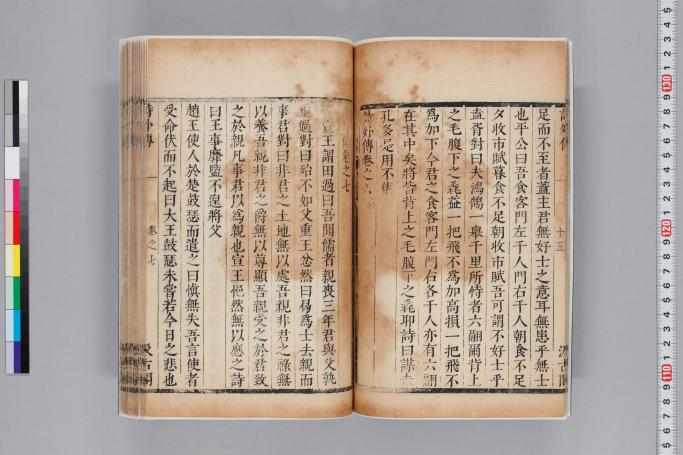 詩外傳
十五
汲古閣
足而不至者蓋主君無好士之意耳無患乎無士
也平公曰吾食客門左千人門右千人朝食不足
夕收市賦暮食不足朝收市賦吾可謂不好士乎
盍胥對曰夫鴻鵠一舉千里所恃者六翮爾背上
之毛腹下之毳益一把飛不爲加高損一把飛不
爲加下今君之食客門左門右各千人亦有六翮
在其中矣將皆背上之毛腹下之毳耶詩曰謀夫
孔多是用不集
詩外傳卷之六
卷之七
宣王謂田過曰吾聞儒者親喪三年君與父孰
重過對曰殆不如父重王忿然曰曷爲士去親而
事君對曰非君之土地無以處吾親非君之祿無
以養吾親非君之爵無以尊顯吾親受之於君致
之於親凡事君以爲親也宣王悒然無以應之詩
曰王事靡盬不遑將父
趙王使人於楚鼓瑟而遣之曰愼無失吾言使者
受命伏而不起曰大王鼓瑟未嘗若今日之悲也
詩外傳
卷之七
汲古閣